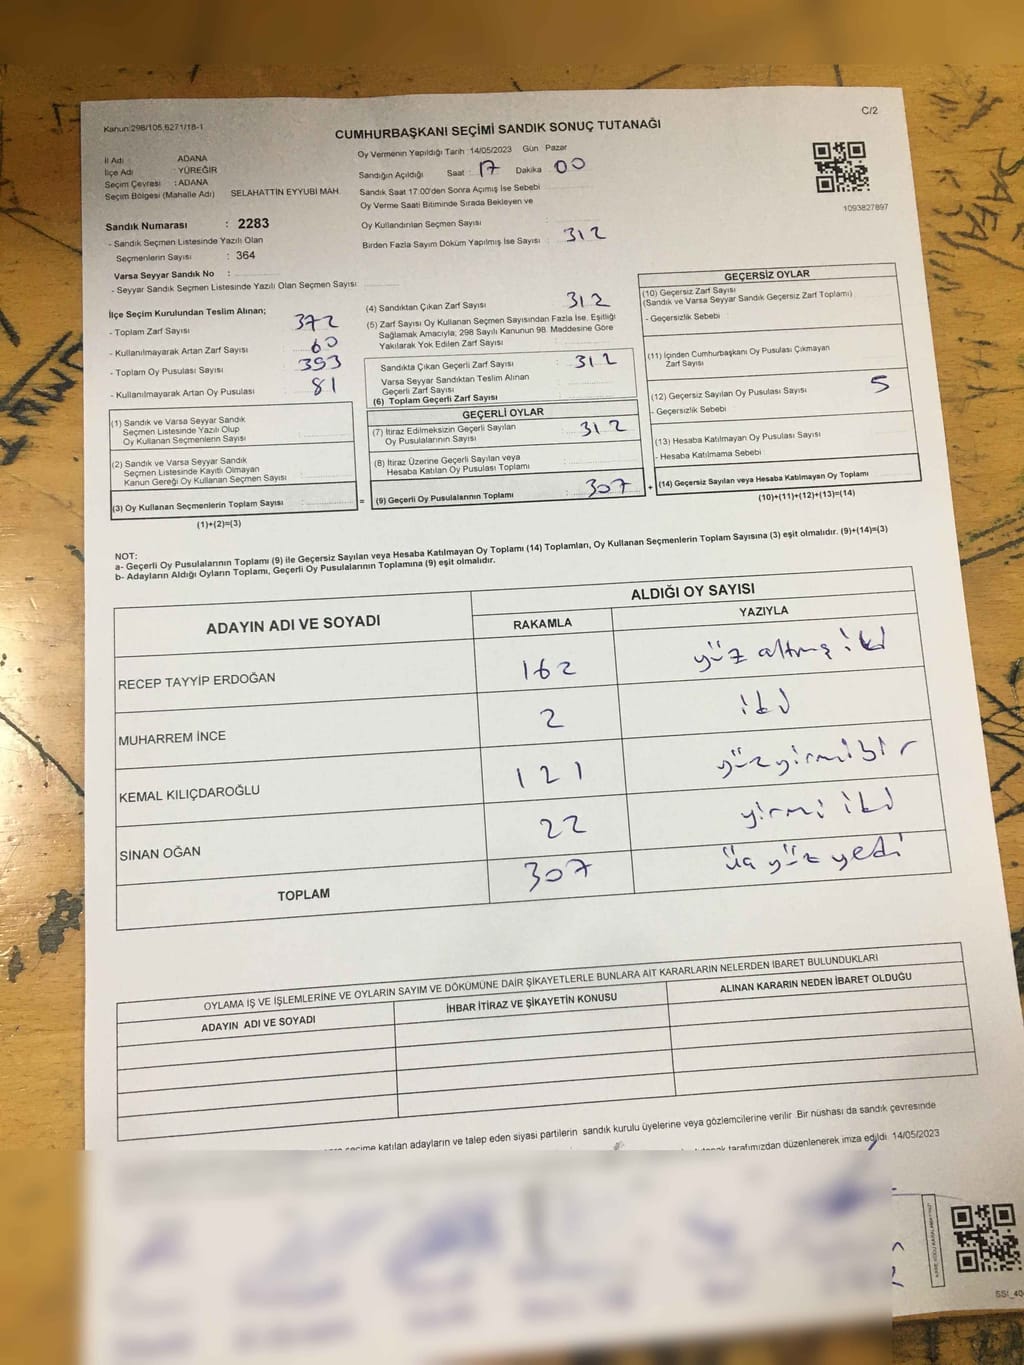 Kanun:298/105,6271/18-1
C/2
CUMHURBAŞKANI SEÇİMİ SANDIK SONUÇ TUTANAĞI
İl Adı : ADANA
İlçe Adı : YÜREĞİR
Seçim Çevresi : ADANA
Seçim Bölgesi (Mahalle Adı) SELAHATTİN EYYUBİ MAH.
Oy Vermenin Yapıldığı Tarih :14/05/2023 Gün Pazar
Sandığın Açıldığı Saat : 17 Dakika 00
Sandık Saat 17:00'den Sonra Açımış İse Sebebi
Oy Verme Saati Bitiminde Sırada Bekleyen ve
Oy Kullandırılan Seçmen Sayısı :
Birden Fazla Sayım Döküm Yapılmış İse Sayısı : 312
1093827897
Sandık Numarası : 2283
- Sandık Seçmen Listesinde Yazılı Olan
Seçmenlerin Sayısı : 364
Varsa Seyyar Sandık No :
- Seyyar Sandık Seçmen Listesinde Yazılı Olan Seçmen Sayısı:
İlçe Seçim Kurulundan Teslim Alınan;
- Toplam Zarf Sayısı : 372
- Kullanılmayarak Artan Zarf Sayısı : 60
- Toplam Oy Pusulası Sayısı : 393
- Kullanılmayarak Artan Oy Pusulası : 81
(1) Sandık ve Varsa Seyyar Sandık
Seçmen Listesinde Yazılı Olup
Oy Kullanan Seçmenlerin Sayısı :
(2) Sandık ve Varsa Seyyar Sandık
Seçmen Listesinde Kayıtlı Olmayan
Kanun Gereği Oy Kullanan Seçmen Sayısı :
(3) Oy Kullanan Seçmenlerin Toplam Sayısı :
(1)+(2)=(3)
(4) Sandıktan Çıkan Zarf Sayısı : 312
(5) Zarf Sayısı Oy Kullanan Seçmen Sayısından Fazla İse, Eşitliği
Sağlamak Amacıyla; 298 Sayılı Kanunun 98. Maddesine Göre
Yakılarak Yok Edilen Zarf Sayısı :
Sandıkta Çıkan Geçerli Zarf Sayısı : 312
Varsa Seyyar Sandıktan Teslim Alınan
Geçerli Zarf Sayısı :
(6) Toplam Geçerli Zarf Sayısı :
GEÇERLİ OYLAR
(7) İtiraz Edilmeksizin Geçerli Sayılan
Oy Pusulalarının Sayısı : 312
(8) İtiraz Üzerine Geçerli Sayılan veya
Hesaba Katılan Oy Pusulası Toplamı :
= (9) Geçerli Oy Pusulalarının Toplamı : 307 +
GEÇERSİZ OYLAR
(10) Geçersiz Zarf Sayısı
(Sandık ve Varsa Seyyar Sandık Geçersiz Zarf Toplamı)
- Geçersizlik Sebebi
(11) İçinden Cumhurbaşkanı Oy Pusulası Çıkmayan
Zarf Sayısı
(12) Geçersiz Sayılan Oy Pusulası Sayısı 5
- Geçersizlik Sebebi
(13) Hesaba Katılmayan Oy Pusulası Sayısı
- Hesaba Katılmama Sebebi
(14) Geçersiz Sayılan veya Hesaba Katılmayan Oy Toplamı
(10)+(11)+(12)+(13)=(14)
NOT:
a- Geçerli Oy Pusulalarının Toplamı (9) ile Geçersiz Sayılan veya Hesaba Katılmayan Oy Toplamı (14) Toplamları, Oy Kullanan Seçmenlerin Toplam Sayısına (3) eşit olmalıdır. (9)+(14)=(3)
b- Adayların Aldığı Oyların Toplamı, Geçerli Oy Pusulalarının Toplamına (9) eşit olmalıdır.
ADAYIN ADI VE SOYADI ALDIĞI OY SAYISI
RAKAMLA YAZIYLA
RECEP TAYYİP ERDOĞAN 162 yüz altmış iki
MUHARREM İNCE 2 iki
KEMAL KILIÇDAROĞLU 121 yüzyirmibir
SİNAN OĞAN 22 yirmi iki
TOPLAM 307 üç yüz yedi
OYLAMA İŞ VE İŞLEMLERİNE VE OYLARIN SAYIM VE DÖKÜMÜNE DAİR ŞİKAYETLERLE BUNLARA AİT KARARLARIN NELERDEN İBARET BULUNDUKLARI
ADAYIN ADI VE SOYADI İHBAR İTİRAZ VE ŞİKAYETİN KONUSU ALINAN KARARIN NEDEN İBARET OLDUĞU
seçime katılan adayların ve talep eden siyasi partilerin sandık kurulu üyelerine veya gözlemcilerine verilir. Bir nüshası da sandık çevresinde
tarafımızdan düzenlenerek imza edildi. 14/05/2023